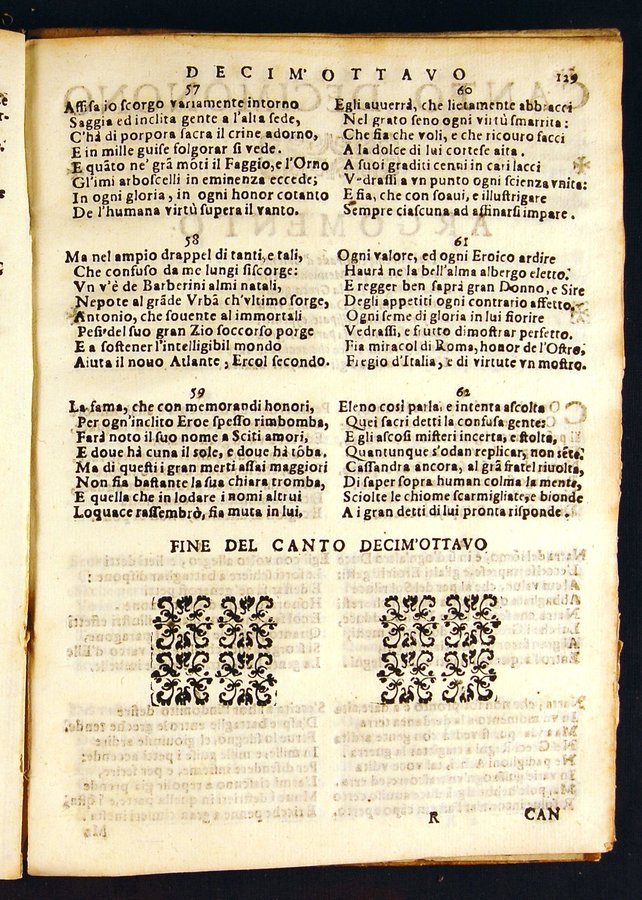 DECIM'OTTAVO 129
57
Assisa io scorgo variamente intorno
Saggia ed inclita gente a l'alta sede,
C'hà di porpora sacra il crine adorno,
E in mille guise folgorar si vede.
E quãto ne' grã mõti il Faggio, e l'Orno
Gl'imi arboscelli in eminenza eccede;
In ogni gloria, in ogni honor cotanto
De l'humana virtù supera il vanto.
58
Ma nel ampio drappel di tanti, e tali,
Che confuso da me lungi si scorge:
Vn v'è de Barberini almi natali,
Nepote al grãde Vrbã ch'vltimo sorge,
Antonio, che souente al immortali
Pesi del suo gran Zio soccorso porge
E a sostener l'intelligibil mondo
Aiuta il nouo Atlante, Ercol secondo.
59
La fama, che con memorandi honori,
Per ogn'inclito Eroe spesso rimbomba,
Farà noto il suo nome a Sciti amori,
E doue hà cuna il sole, e doue hà tõba.
Ma di questi i gran merti assai maggiori
Non fia bastante la sua chiara tromba,
E quella che in lodare i nomi altrui
Loquace rassembrò, fia muta in lui.
60
Egli auuerrà, che lietamente abbracci
Nel grato seno ogni virtù smarrita:
Che fia che voli, e che ricouro facci
A la dolce di lui cortese aita.
A suoi graditi cenni in cari lacci
Vedrassi a vn punto ogni scienza vnita:
E fia, che con soaui, e illustri gare
Sempre ciascuna ad affinarsi impare.
61
Ogni valore, ed ogni Eroico ardire
Haurà ne la bell'alma albergo eletto.
E regger ben saprà gran Donno, e Sire
Degli appetiti ogni contrario affetto.
Ogni seme di gloria in lui fiorire
Vedrassi, e frutto dimostrar perfetto.
Fia miracol di Roma, honor de l'Ostro,
Fregio d'Italia, e di virtute vn mostro.
62
Eleno così parla, e intenta ascolta
Quei sacri detti la confusa gente:
E gli ascosi misteri incerta, e stolta,
Quantunque s'odan replicar, non sẽte.
Cassandra ancora, al grã fratel riuolta,
Di saper sopra human colma la mente,
Sciolte le chiome scarmigliate, e bionde
A i gran detti di lui pronta risponde.
FINE DEL CANTO DECIM'OTTAVO
R CAN